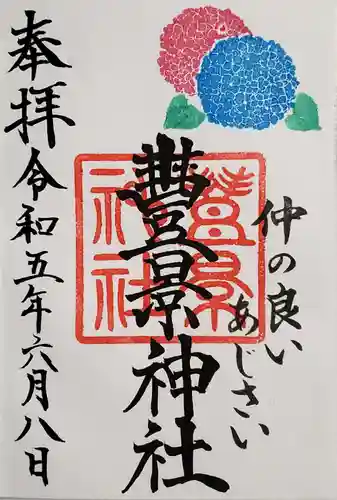 仲の良い
あじさい
豐景神社
豊景
神社
奉拝令和五年六月八日